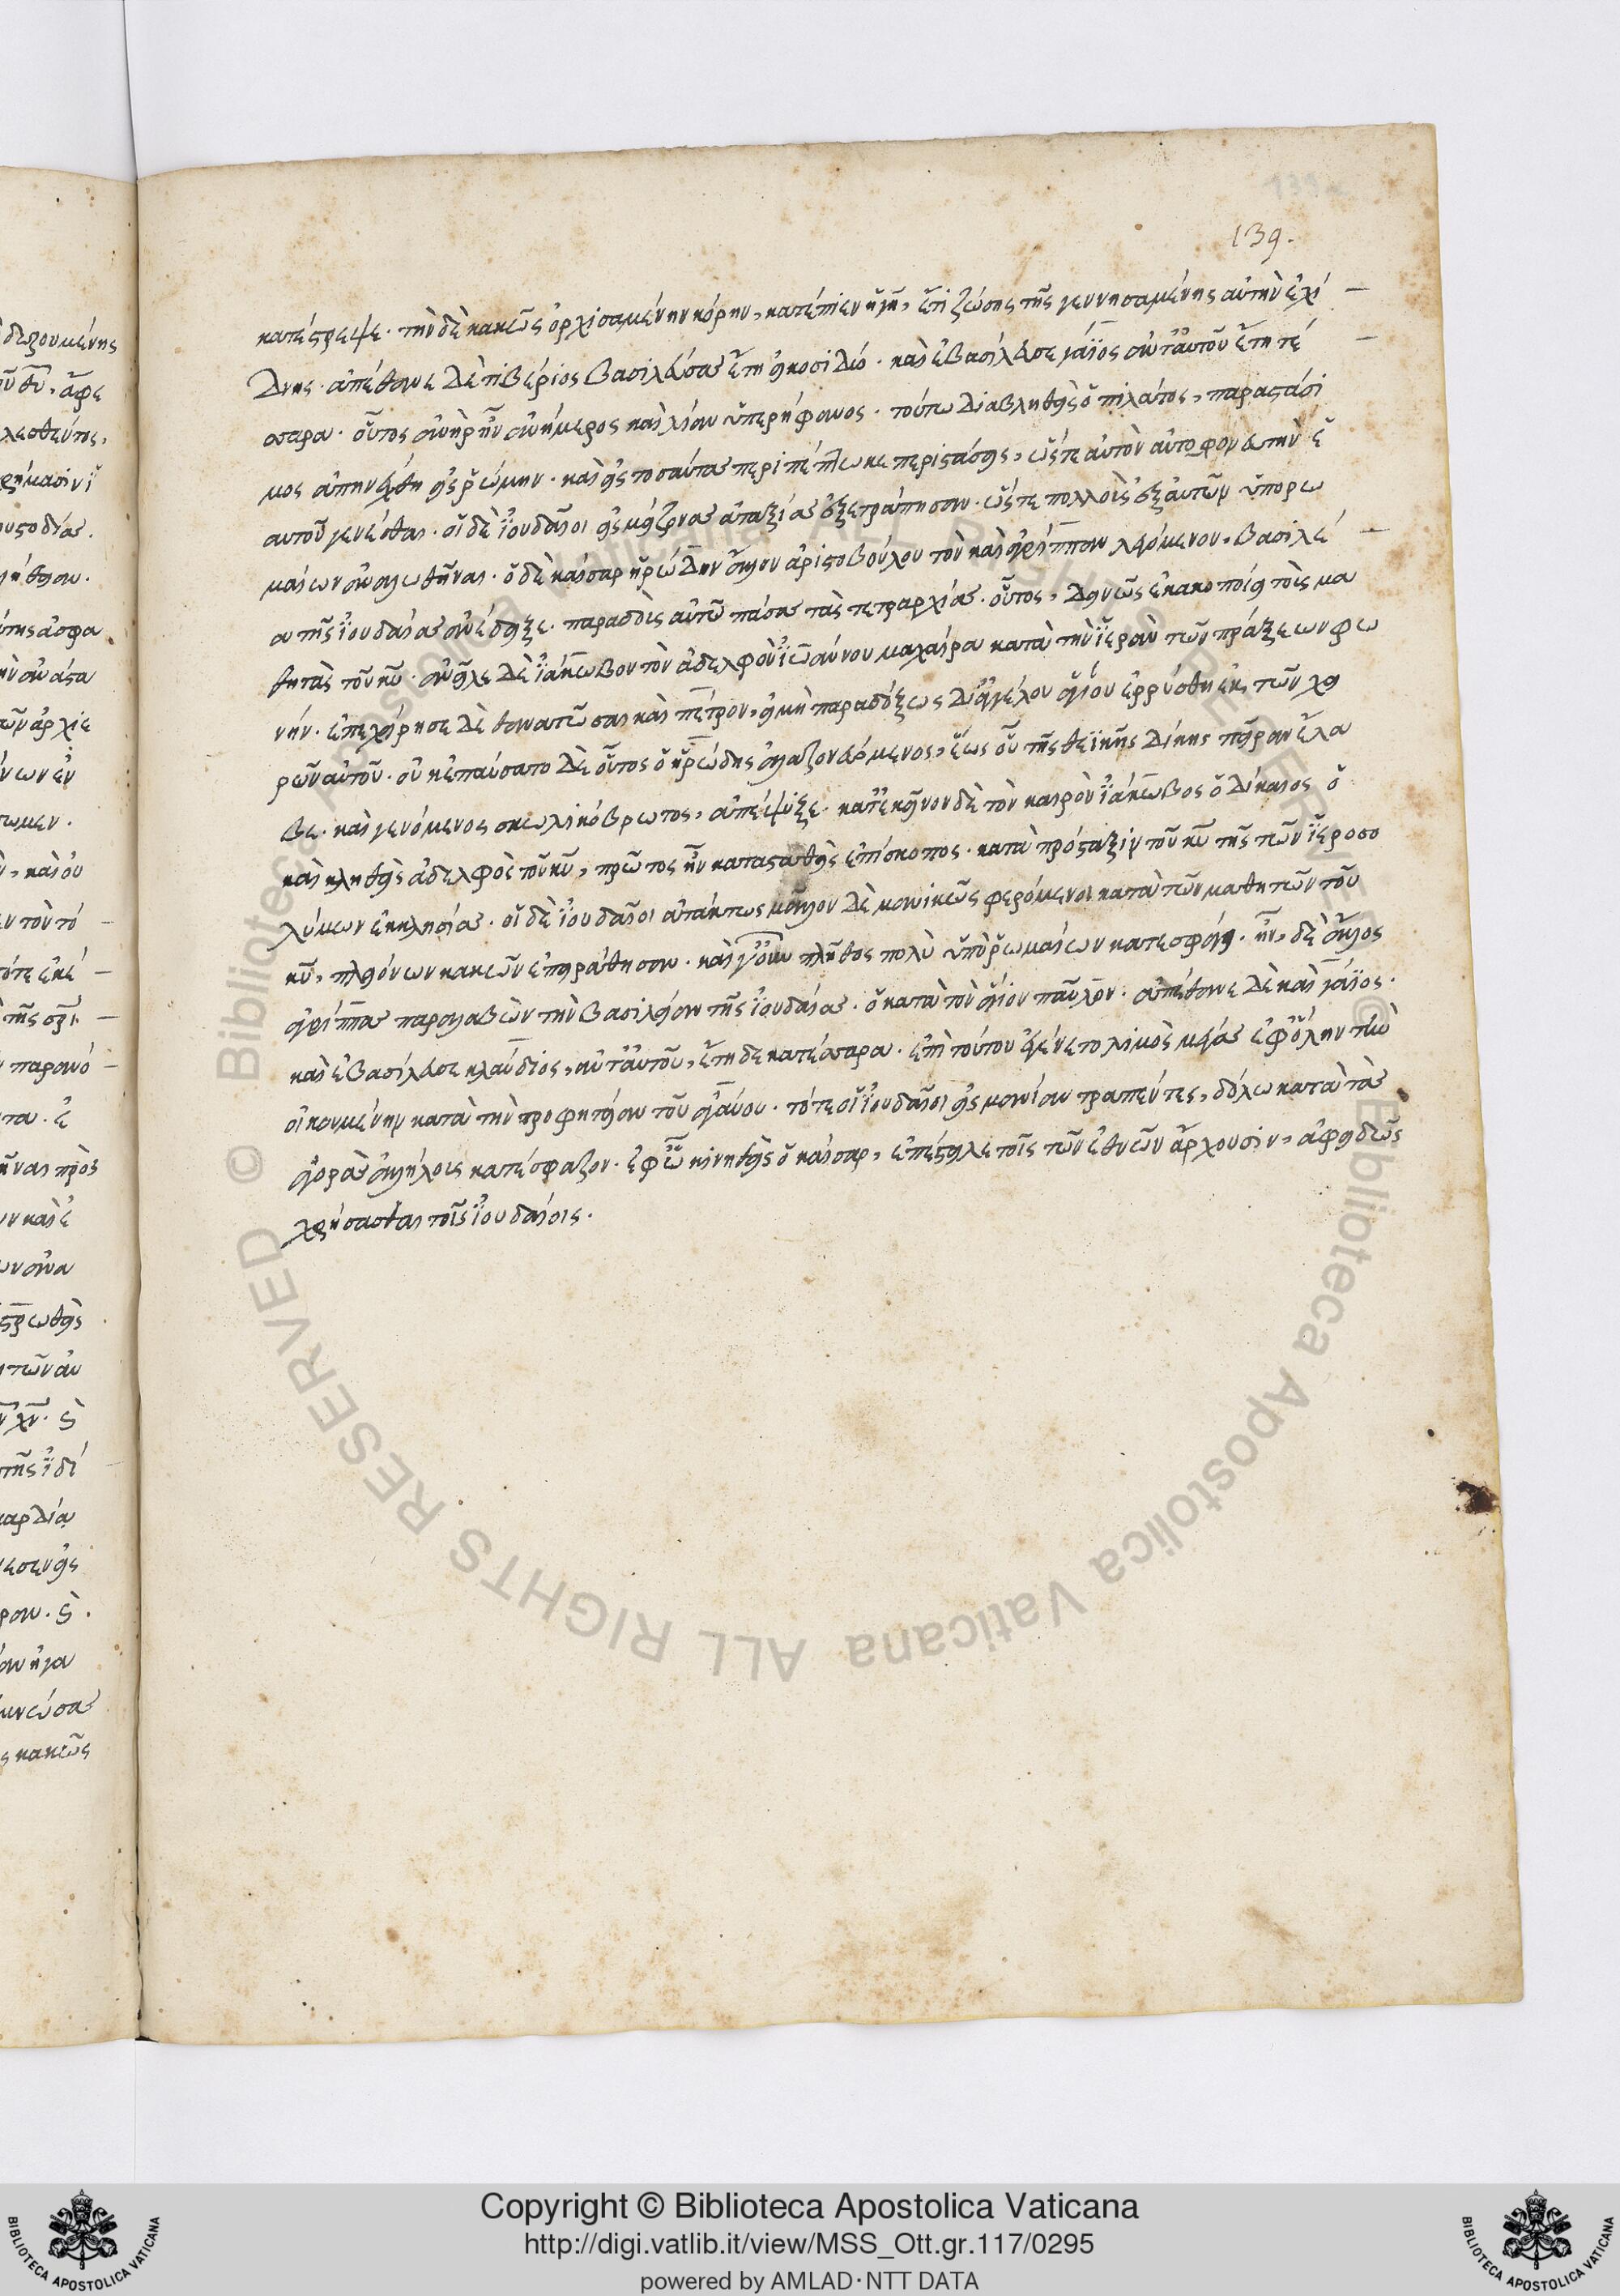 139.
κατέστρεψε· τὴν δὲ κακῶς ὀρχισαμένην κόρην, κατέπιεν ἡ γῆ, ἔτι ζώσης τῆς γεννησαμένης αὐτὴν ἐχί
δνης· ἀπέθανε δὲ τιβέριος βασιλεύσας ἔτη εἴκοσι δύο· καὶ ἐβασίλευσε γάϊος ἀντ' αὐτοῦ ἔτη τέ
σσαρα· οὗτος ἀνὴρ ἦν ἀνήμερος καὶ λίαν ὑπερήφανος· τούτω διαβληθεὶς ὁ πιλάτος, παραστάσι
μος ἀπηνέχθη εἰς ῥώμην· καὶ εἰς τοσαύτας περιπέπτωκε περιστάσεις, ὥστε αὐτὸν αὐτοφονευτὴν ἑ
αυτοῦ γενέσθαι· οἱ δὲ ἰουδαῖοι εἰς μείζονας ἀταξίας ἐξετράπησαν· ὥστε πολλοὺς ἐξ αὐτῶν ὑπὸ ῥω
μαίων ἀναλωθῆναι· ὁ δὲ καῖσαρ ἡρώδην υἱὸν ἀριστοβούλου τὸν καὶ ἀγρίππαν λεγόμενον, βασιλέ
α τῆς ἰουδαίας ἀνέδειξε· παραδοὺς αὐτῶ πάσας τὰς τετραρχίας· οὗτος, δεινῶς ἐκακοποίει τοὺς μα
θητὰς τοῦ κυ· ἀνεῖλε δὲ ἰάκωβον τὸν ἀδελφὸν ἰωάννου μαχαίρα κατὰ τὴν ἱερὰν τῶν πράξεων φω
νήν· ἐπεχείρησε δὲ θανατῶσαι καὶ πέτρον, εἰ μὴ παραδόξως δι' ἀγγέλου ἁγίου ἐρρύσθη ἐκ τῶν χει
ρῶν αὐτοῦ· οὐκ ἐπαύσατο δὲ οὗτος ὁ ἡρώδης ἀλαζονευόμενος, ἕως οὗ τῆς θεϊκῆς δίκης πεῖραν ἔλα
βε· καὶ γενόμενος σκωλικόβρωτος, ἀπέψυξε· κατ' ἐκεῖνον δὲ τὸν καιρὸν ἰάκωβος ὁ δίκαιος ὁ
καὶ κληθεὶς ἀδελφὸς τοῦ κυ, πρῶτος ἦν κατασταθεὶς ἐπίσκοπος· κατὰ πρόσταξιν τοῦ κυ τῆς τῶν ἱεροσο
λύμων ἐκκλησίας· οἱ δὲ ἰουδαῖοι ἀτάκτως μᾶλλον δὲ μανικῶς φερόμενοι κατὰ τῶν μαθητῶν τοῦ
κυ, πλειόνων κακῶν ἐπειράθησαν· καὶ πλῆθος πολὺ ὑπὸ ῥωμαίων κατεσφάγη· ἦν, δὲ ἄλλος
ἀγρίππας παραλαβὼν τὴν βασιλείαν τῆς ἰουδαίας· ὁ κατὰ τὸν ἅγιον παῦλον· ἀπέθανε δὲ καὶ γάϊος·
καὶ ἐβασίλευσε κλαύδιος, ἀντ' αὐτοῦ, ἔτη δεκατέσσαρα· ἐπὶ τούτου ἐγένετο λιμὸς μέγας ἐφ' ὅλην τὴν
οἰκουμένην κατὰ τὴν προφητείαν τοῦ ἀγάβου· τότε οἱ ἰουδαῖοι εἰς μανίαν τραπέντες, δόλω κατὰ τὰς
ἀγορὰς ἀλλήλους κατέσφαζον· ἐφ' ὧ κινηθεὶς ὁ καῖσαρ, ἐπέστειλε τοῖς τῶν ἐθνῶν ἄρχουσιν, ἀφειδῶς
χρήσασθαι τοῖς ἰουδαίοις·
© Biblioteca Apostolica Vaticana ALL RIGHTS RESERVED
Copyright © Biblioteca Apostolica Vaticana
http://digi.vatlib.it/view/MSS_Ott.gr.117/0295
powered by AMLAD·NTT DATA
BIBLIOTECA APOSTOLICA VATICANA
BIBLIOTECA APOSTOLICA VATICANA